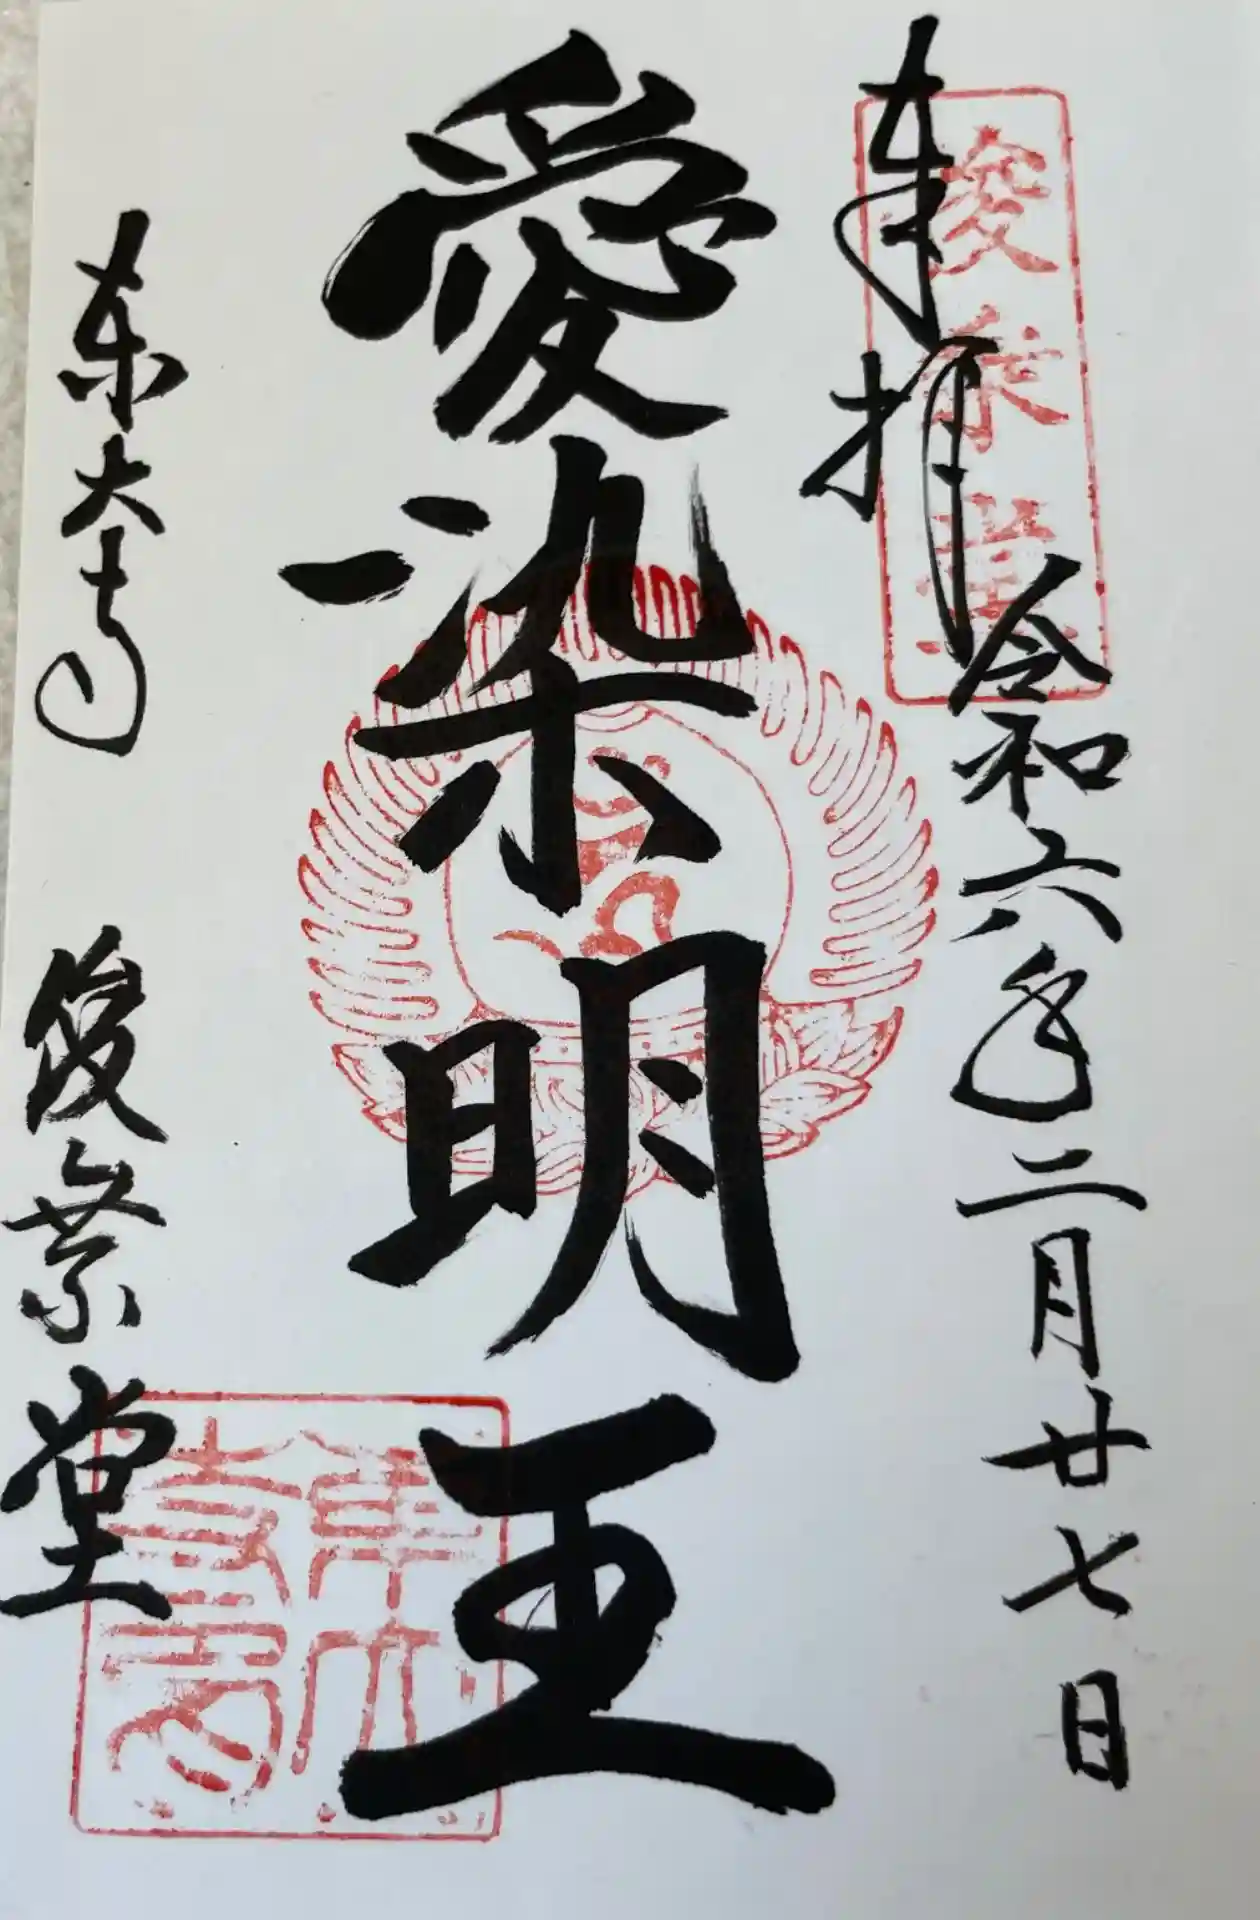 奉拝
令和六年二月廿七日
愛染明王
東大寺
俊乗堂
俊乗堂